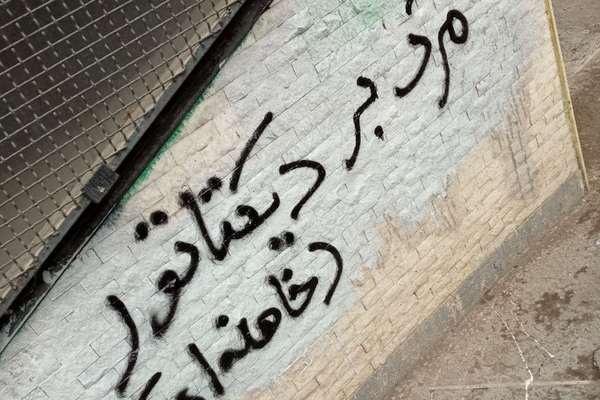 مرگ بر دیکتاتور
(خامنه ای